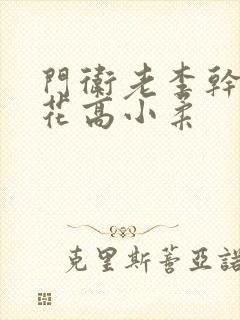 門衛老李幹
花高小柔
克里斯蒂亞諾